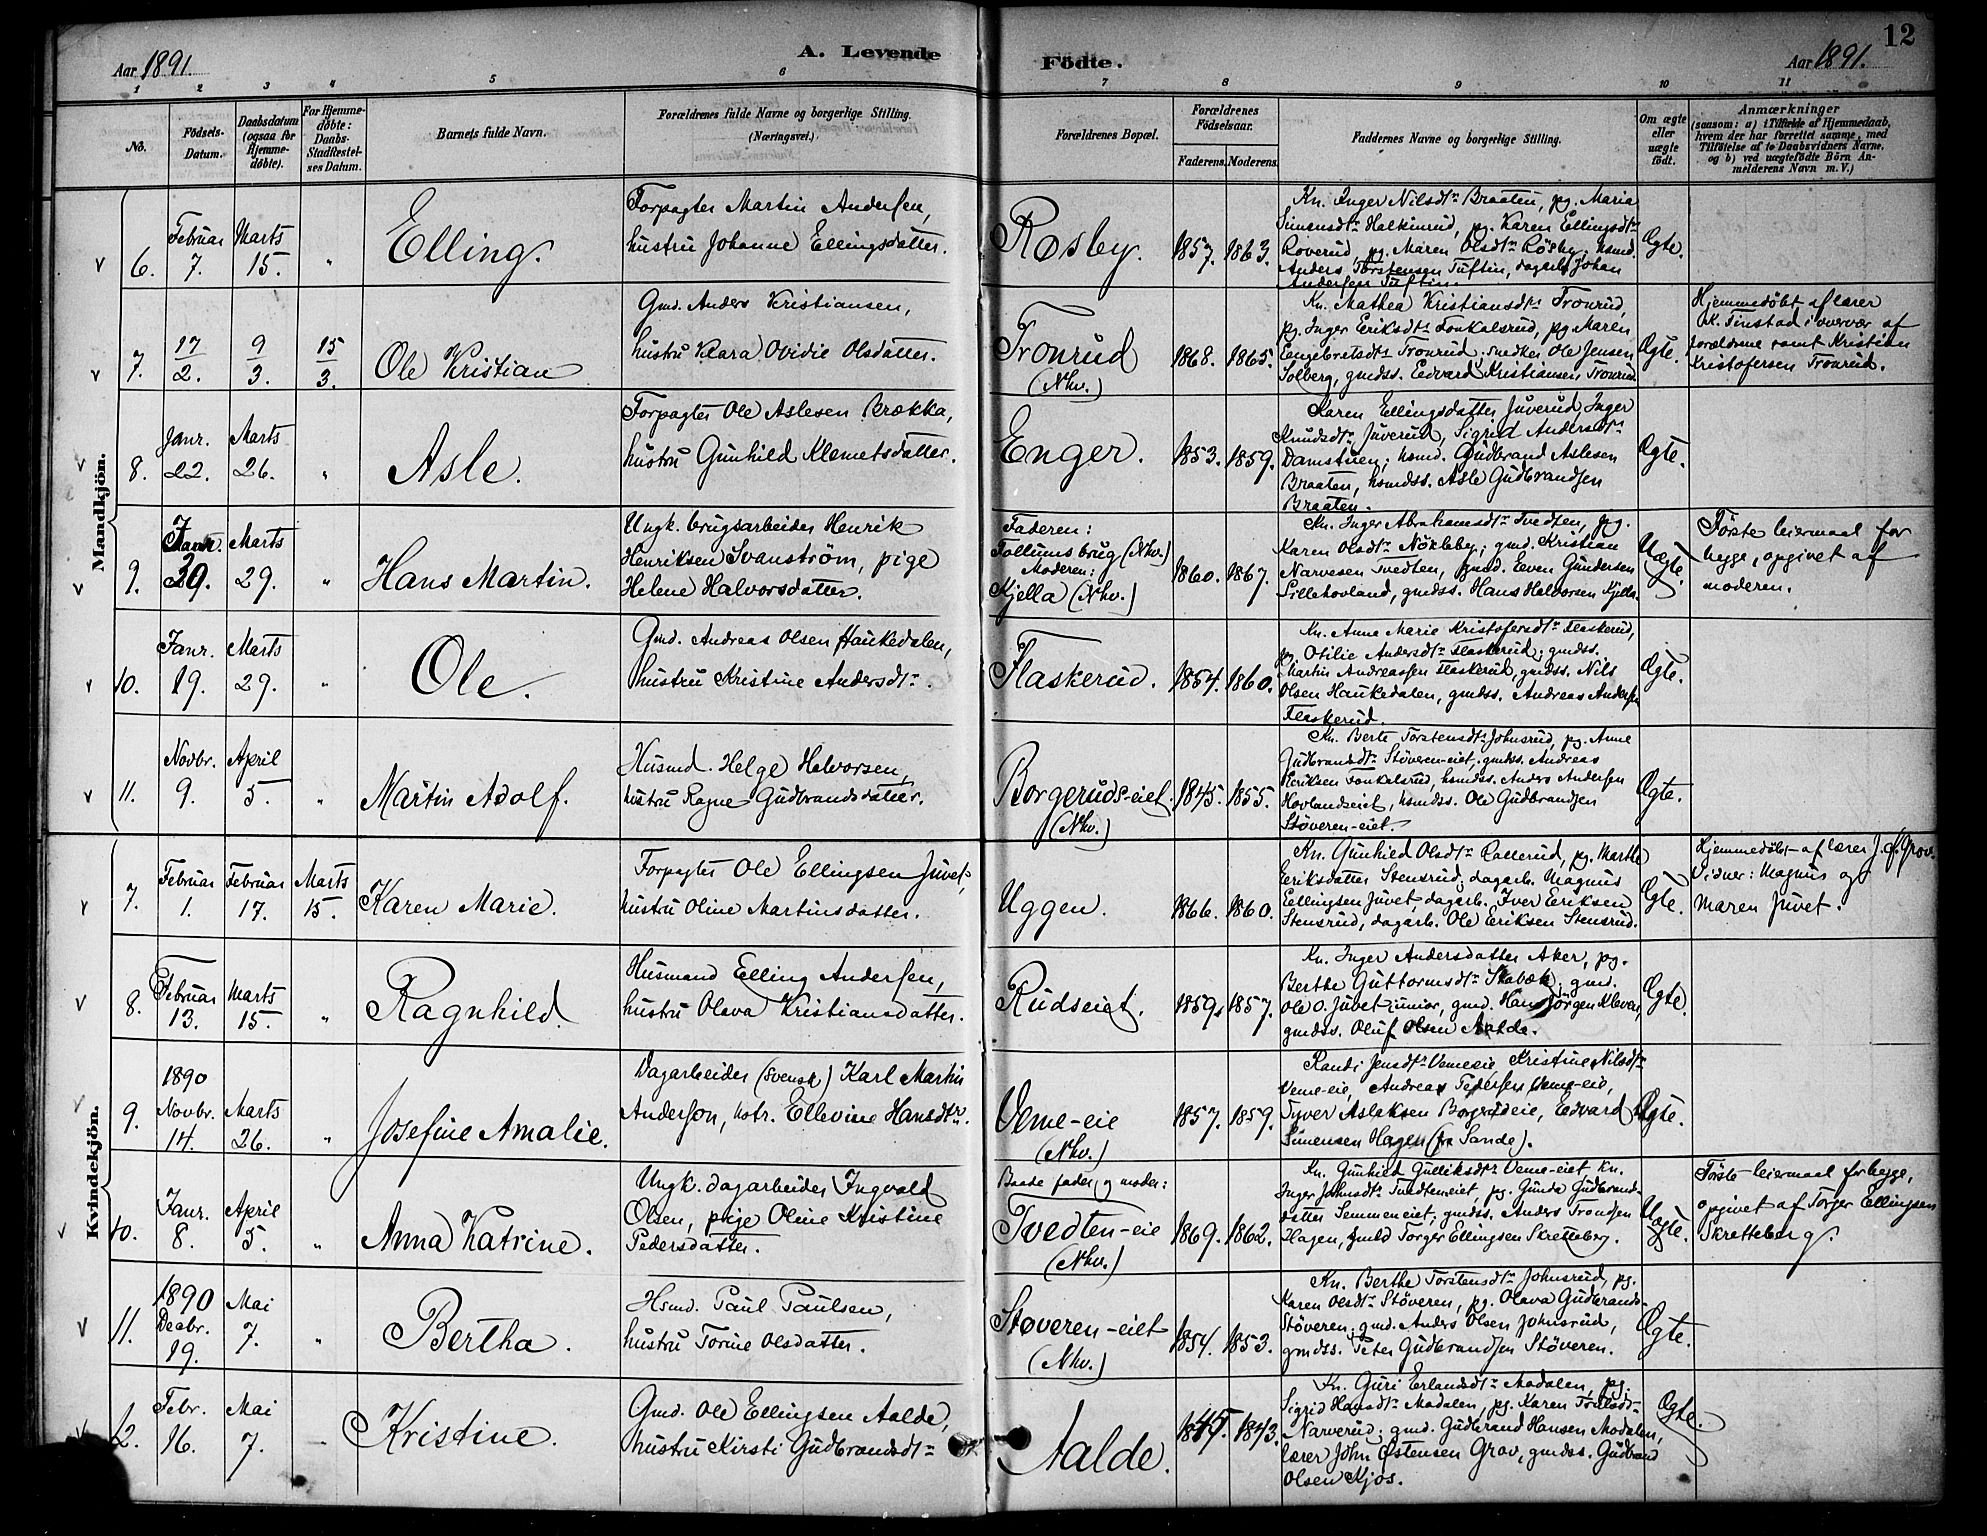 12
Aar 1891.
A. Levende
Födte.
Aar 1891.
1 2 3 4 5 6 7 8 9 10 11
No.
Födsels-
Datum.
Daabsdatum
(ogsaa for
Hjemme-
döbte).
For Hjemme-
döbte:
Daabs-
Stadfæstel-
ses Datum.
Barnets fulde Navn.
Forældrenes fulde Navne og borgerlige Stilling.
(Næringsvei.)
Forældrenes Bopæl.
Forældrenes
Födselsaar.
Faderens. Moderens.
Faddernes Navne og borgerlige Stilling.
Om ægte
eller
uægte
født.
Anmærkninger
(saasom: a) i Tilfælde af Hjemmedaab,
hvem der har forrettet samme, med
Tilföielse af to Daabsvidners Navne,
og b) ved uægtefödte Börn An-
melderens Navn m. V.)
Mandkjön.
6.
Februar
7.
Marts
15.
"
Elling.
Forpagter Martin Andersen,
hustru Johanne Ellingsdatter.
Røsby.
1857. 1863.
Kn. Inger Nilsdtr Braaten, pg. Maria
Simensdtr Halkinrud, pg. Karen Ellingsdtr
Roverud, pg. Maren Olsdtr Røsby, husmd.
Anders Torstensen Tuftin, dagarb. Johan
Andersen Tuftin.
Ægte.
7.
17/2.
9/3.
15/3.
Ole Kristian
Gmd. Anders Kristiansen,
hustru Klara Ovidie Olsdatter.
Tronrud
(Nhv.)
1868. 1865.
Kn. Mathea Kristiansdtr Tronrud,
pg. Inger Eriksdtr Fonkalsrud, pg. Maren
Engebretsdtr Tronrud, snedker Ole Jensen
Solberg, gmdss. Edvard Kristiansen Tronrud.
Ægte.
Hjemmedøbt af lærer
K. Tinstad i overvær af
forældrene samt Kristian
Kristofersen Tronrud.
8.
Janr.
22.
Marts
26.
"
Asle.
Forpagter Ole Aslesen Brækka,
hustru Gunhild Klemetsdatter.
Enger.
1853. 1859.
Karen Ellingsdatter Juverud, Inger
Knudsdtr Juverud, Sigrid Andersdtr
Damstuen; husmd. Gudbrand Aslesen
Braaten, husmdss. Asle Gudbrandsen
Braaten.
Ægte.
9.
Janr.
30.
Marts
29.
"
Hans Martin.
Ungk. brugsarbeider Henrik
Henriksen Svanstrøm, pige
Helene Halvorsdatter.
Faderen:
Follums brug (Nhv.)
Moderen:
Kjella (Nhv.)
1860. 1867.
Kn. Inger Abrahamsdtr Tvedten, pg.
Karen Olsdtr Nökleby; gmd. Kristian
Narvesen Tvedten, gmd. Even Gundersen
Sillehovland, gmdss. Hans Halvorsen Kjella.
Uægte.
Første leiermaal for
begge, opgivet af
moderen.
10.
Janr.
19.
Marts
29.
"
Ole.
Gmd. Andreas Olsen Haukedalen,
hustru Kristine Andersdtr.
Flaskerud.
1854. 1860.
Kn. Anne Marie Kristofersdtr Flaskerud,
pg. Otilie Andersdtr Flaskerud; gmdss.
Martin Andreassen Flaskerud, gmdss. Nils
Olsen Haukedalen, gmdss. Andreas Andersen
Flaskerud.
Ægte.
11.
Novbr.
9.
April
5.
"
Martin Adolf.
Husmd. Helge Halvorsen,
hustru Ragne Gudbrandsdatter.
Borgeruds-eiet.
(Nhv.)
1845. 1855.
Kn. Berte Torstensdtr Johnsrud, pg. Anne
Gudbrandsdtr Støveren-eiet; gmdss. Andreas
Eriksen Fonkalsrud, husmdss. Anders Andersen
Hovlandseiet, husmdss. Ole Gudbrandsen
Støveren-eiet.
Ægte.
Kvindekjön.
7.
Februar
1.
Februar
17.
Marts
15.
Karen Marie.
Forpagter Ole Ellingsen Juvet,
hustru Oline Martinsdatter.
Uggen.
1866. 1860.
Kn. Gunhild Olsdtr Rallerud, pg. Marthe
Eriksdatter Stensrud; dagarb. Magnus
Ellingsen Juvet, dagarb. Iver Eriksen
Stensrud, dagarb. Ole Eriksen Stensrud.
Ægte.
Hjemmedøbt af lærer J. Ø. Grov.
Vidner: Magnus og
Maren Juvet.
8.
Februar
13.
Marts
15.
"
Ragnhild.
Husmand Elling Andersen,
hustru Olava Kristiansdatter.
Rudseiet.
1859. 1857.
Kn. Inger Andersdatter Aker, pg.
Berthe Guttormsdtr Skabæk; gmd.
Ole O. Juvet junior, gmd. Hans Jørgen Klevar,
gmdss. Oluf Olsen Aalde.
Ægte.
9.
1890
Novbr.
14.
Marts
26.
"
Josefine Amalie.
Dagarbeider (svensk) Karl Martin
Anderson, hstr. Ellevine Hansdtr.
Veme-eie
(Nhv.)
1857. 1859.
Randi Jensdtr Vemeeie, Kristine Nilsdtr
Veme-eie, Andreas Pedersen Veme-eie,
Tyver Aslaksen Borgerudeie, Edvard
Simensen Hagen (fra Sande).
Ægte.
10.
Janr.
8.
April
5.
"
Anna Katrine.
Ungk. dagarbeider Ingvald
Olsen, pige Oline Kristine
Pedersdatter.
Baade fader og moder:
Tvedten-eie
(Nhv.)
1869. 1862.
Kn. Gunhild Gulliksdtr Veme-eiet, Kn.
Inger Johnsdtr Tvedteneiet, pg. Gunda Gudbrands-
datter Semmeneiet; gmdss. Anders Trondsen
Hagen, gmd. Torger Ellingsen Skretteberg.
Uægte.
Første leiermaal for begge,
opgivet af Torger Ellingsen
Skretteberg.
11.
1890
Decbr.
19.
Mai
7.
"
Bertha.
Hsmd. Paul Paulsen,
hustru Torine Olsdatter.
Støveren-eiet
(Nhv.)
1854. 1853.
Kn. Berthe Torstensdtr Johnsrud, pg.
Karen Olsdtr Støveren, pg. Olava Gudbrands-
Støveren; gmd. Anders Olsen Johnsrud,
gmdss. Peter Gudbrandsen Støveren.
Ægte.
12.
Febr.
16.
Mai
7.
Kristine.
Gmd. Ole Ellingsen Aalde,
hustru Kirsti Gudbrandsdtr
Aalde.
1845. 1843.
Kn. Guri Erlandsdtr Modalen, pg.
Sigrid Hansdtr Modalen, pg. Karen
Narverud; gmd. Gudbrand Hansen Modalen,
lærer John Østensen Grov, gmdss. Gudbrand
Olsen Kjos.
Ægte.